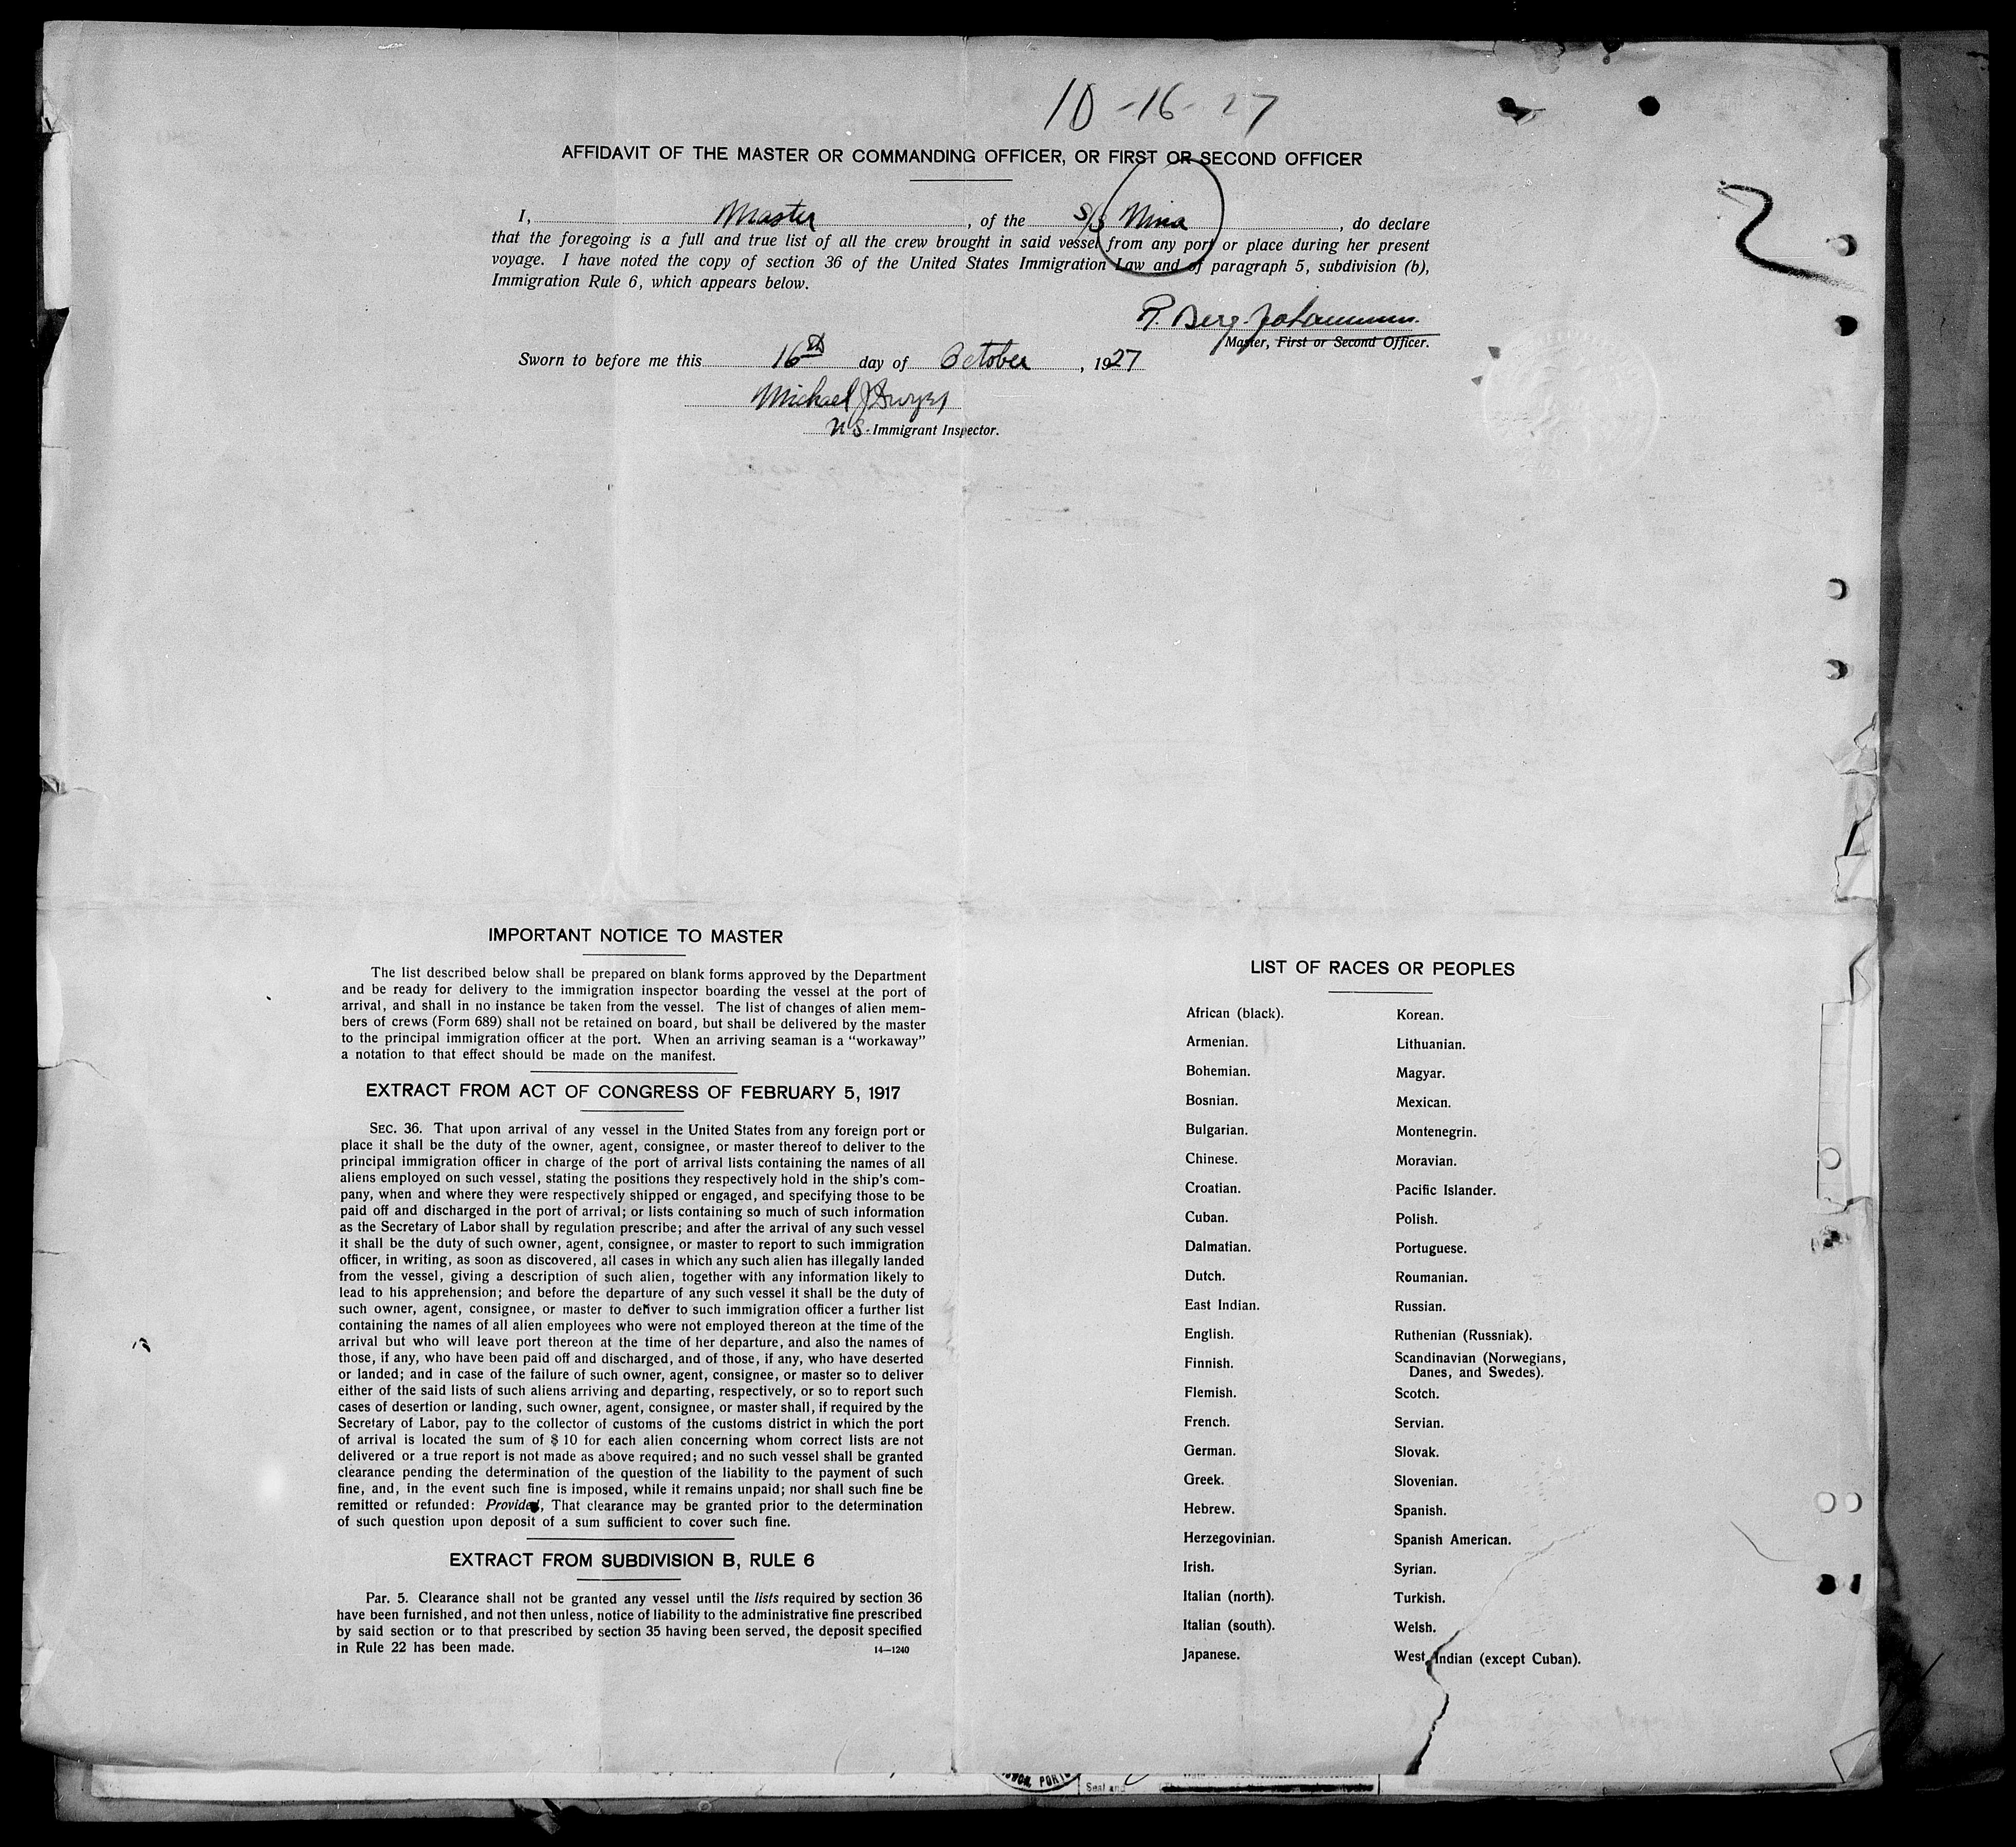 10-16-27
AFFIDAVIT OF THE MASTER OR COMMANDING OFFICER, OR FIRST OR SECOND OFFICER
I, Master, of the S/S Nina, do declare
that the foregoing is a full and true list of all the crew brought in said vessel from any port or place during her present
voyage. I have noted the copy of section 36 of the United States Immigration Law and of paragraph 5, subdivision (b),
Immigration Rule 6, which appears below.
2
P. Berg-Johannessen.
Master, First or Second Officer.
Sworn to before me this 16th day of October, 1927
Michael J Dwyer
U S. Immigrant Inspector.
IMPORTANT NOTICE TO MASTER
The list described below shall be prepared on blank forms approved by the Department
and be ready for delivery to the immigration inspector boarding the vessel at the port of
arrival, and shall in no instance be taken from the vessel. The list of changes of alien mem-
bers of crews (Form 689) shall not be retained on board, but shall be delivered by the master
to the principal immigration officer at the port. When an arriving seaman is a "workaway"
a notation to that effect should be made on the manifest.
EXTRACT FROM ACT OF CONGRESS OF FEBRUARY 5, 1917
SEC. 36. That upon arrival of any vessel in the United States from any foreign port or
place it shall be the duty of the owner, agent, consignee, or master thereof to deliver to the
principal immigration officer in charge of the port of arrival lists containing the names of all
aliens employed on such vessel, stating the positions they respectively hold in the ship's com-
pany, when and where they were respectively shipped or engaged, and specifying those to be
paid off and discharged in the port of arrival; or lists containing so much of such information
as the Secretary of Labor shall by regulation prescribe; and after the arrival of any such vessel
it shall be the duty of such owner, agent, consignee, or master to report to such immigration
officer, in writing, as soon as discovered, all cases in which any such alien has illegally landed
from the vessel, giving a description of such alien, together with any information likely to
lead to his apprehension; and before the departure of any such vessel it shall be the duty of
such owner, agent, consignee, or master to deliver to such immigration officer a further list
containing the names of all alien employees who were not employed thereon at the time of the
arrival but who will leave port thereon at the time of her departure, and also the names of
those, if any, who have been paid off and discharged, and of those, if any, who have deserted
or landed; and in case of the failure of such owner, agent, consignee, or master so to deliver
either of the said lists of such aliens arriving and departing, respectively, or so to report such
cases of desertion or landing, such owner, agent, consignee, or master shall, if required by the
Secretary of Labor, pay to the collector of customs of the customs district in which the port
of arrival is located the sum of $10 for each alien concerning whom correct lists are not
delivered or a true report is not made as above required; and no such vessel shall be granted
clearance pending the determination of the question of the liability to the payment of such
fine, and, in the event such fine is imposed, while it remains unpaid; nor shall such fine be
remitted or refunded: Provided, That clearance may be granted prior to the determination
of such question upon deposit of a sum sufficient to cover such fine.
EXTRACT FROM SUBDIVISION B, RULE 6
Par. 5. Clearance shall not be granted any vessel until the lists required by section 36
have been furnished, and not then unless, notice of liability to the administrative fine prescribed
by said section or to that prescribed by section 35 having been served, the deposit specified
in Rule 22 has been made.
14—1240
LIST OF RACES OR PEOPLES
African (black).
Armenian.
Bohemian.
Bosnian.
Bulgarian.
Chinese.
Croatian.
Cuban.
Dalmatian.
Dutch.
East Indian.
English.
Finnish.
Flemish.
French.
German.
Greek.
Hebrew.
Herzegovinian.
Irish.
Italian (north).
Italian (south).
Japanese.
Korean.
Lithuanian.
Magyar.
Mexican.
Montenegrin.
Moravian.
Pacific Islander.
Polish.
Portuguese.
Roumanian.
Russian.
Ruthenian (Russniak).
Scandinavian (Norwegians,
Danes, and Swedes).
Scotch.
Servian.
Slovak.
Slovenian.
Spanish.
Spanish American.
Syrian.
Turkish.
Welsh.
West Indian (except Cuban).
Seal and